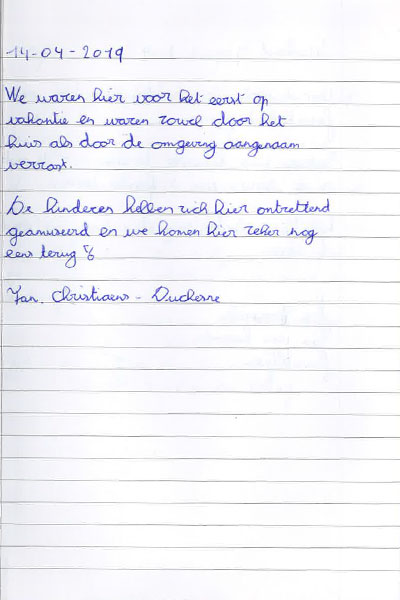 14-04-2019
We waren hier voor het eerst op
vakantie en waren zowel door het
huis als door de omgeving aangenaam
verrast.
De kinderen hebben zich hier ontzettend
geamuseerd en we komen hier zeker nog
eens terug
Fam. Christiaens - Duchesne